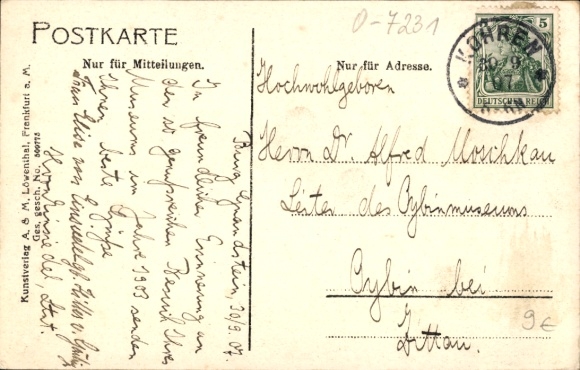 POSTKARTE
Nur für Mitteilungen.
Nur für Adresse.
O-7231
KOHREN
30/9
07
5
DEUTSCHES REICH
Hochwohlgeboren
Herrn Dr. Alfred Moschkau
Leiter des Oybinmuseums
Oybin bei
Zittau.
9€
Burg Gnandstein, 30/9. 07.
In freundlicher Erinnerung an
den so genussreichen Besuch Ihres
Museums im Jahre 1903 senden
Ihnen beste Grüße
Frau Elise von
von Einsiedel, Lt.
Kunstverlag A. & M. Löwenthal, Frankfurt a. M.
Ges. gesch. No. 500775